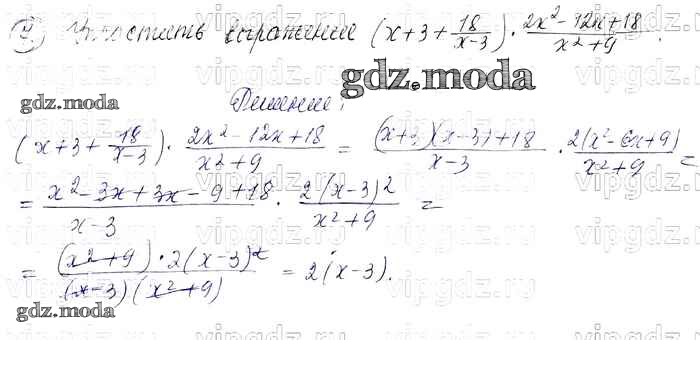 4) Упростить выражение (x+3+18/(x-3)) · (2x²-12x+18)/(x²+9).
gdz.moda
gdz.moda
Решение:
(x+3+18/(x-3)) · (2x²-12x+18)/(x²+9) = ((x+3)(x-3)+18)/(x-3) · 2(x²-6x+9)/(x²+9) =
= (x²-3x+3x-9+18)/(x-3) · 2(x-3)²/(x²+9) =
= ((x²+9)·2(x-3)²)/((x-3)(x²+9)) = 2(x-3).
gdz.moda
vipgdz.ru